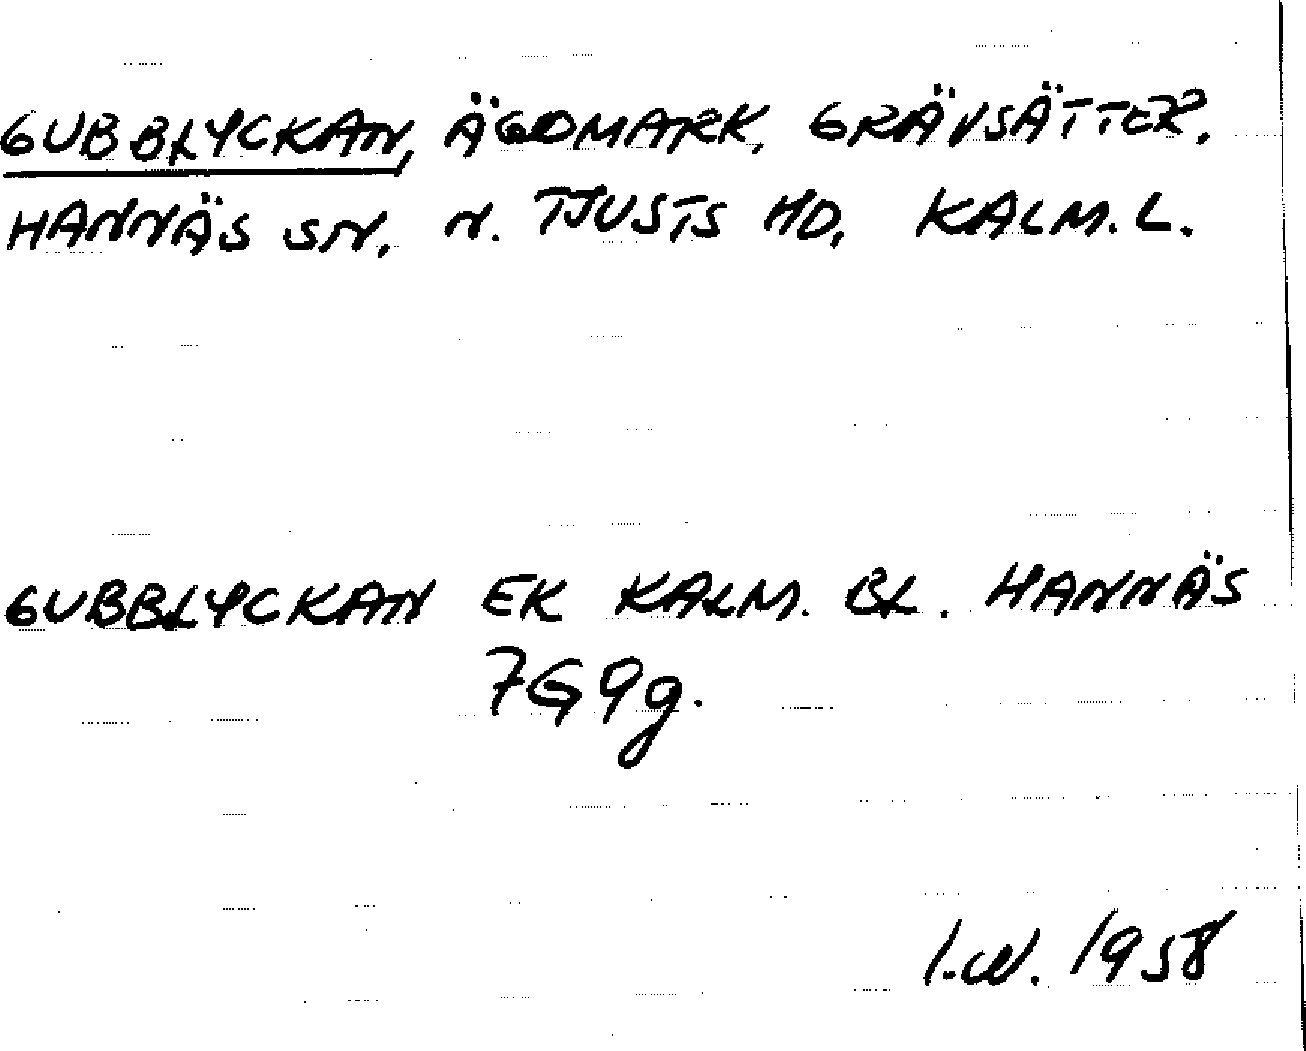 GUBBLYCKAN, ÄGOMARK, GRÄVSÄTTER,
HANNÄS SN, N. TJUSTS HD, KALM. L.
GUBBLYCKAN EK KALM. BL. HANNÄS
7G9g.
I.W. 1958